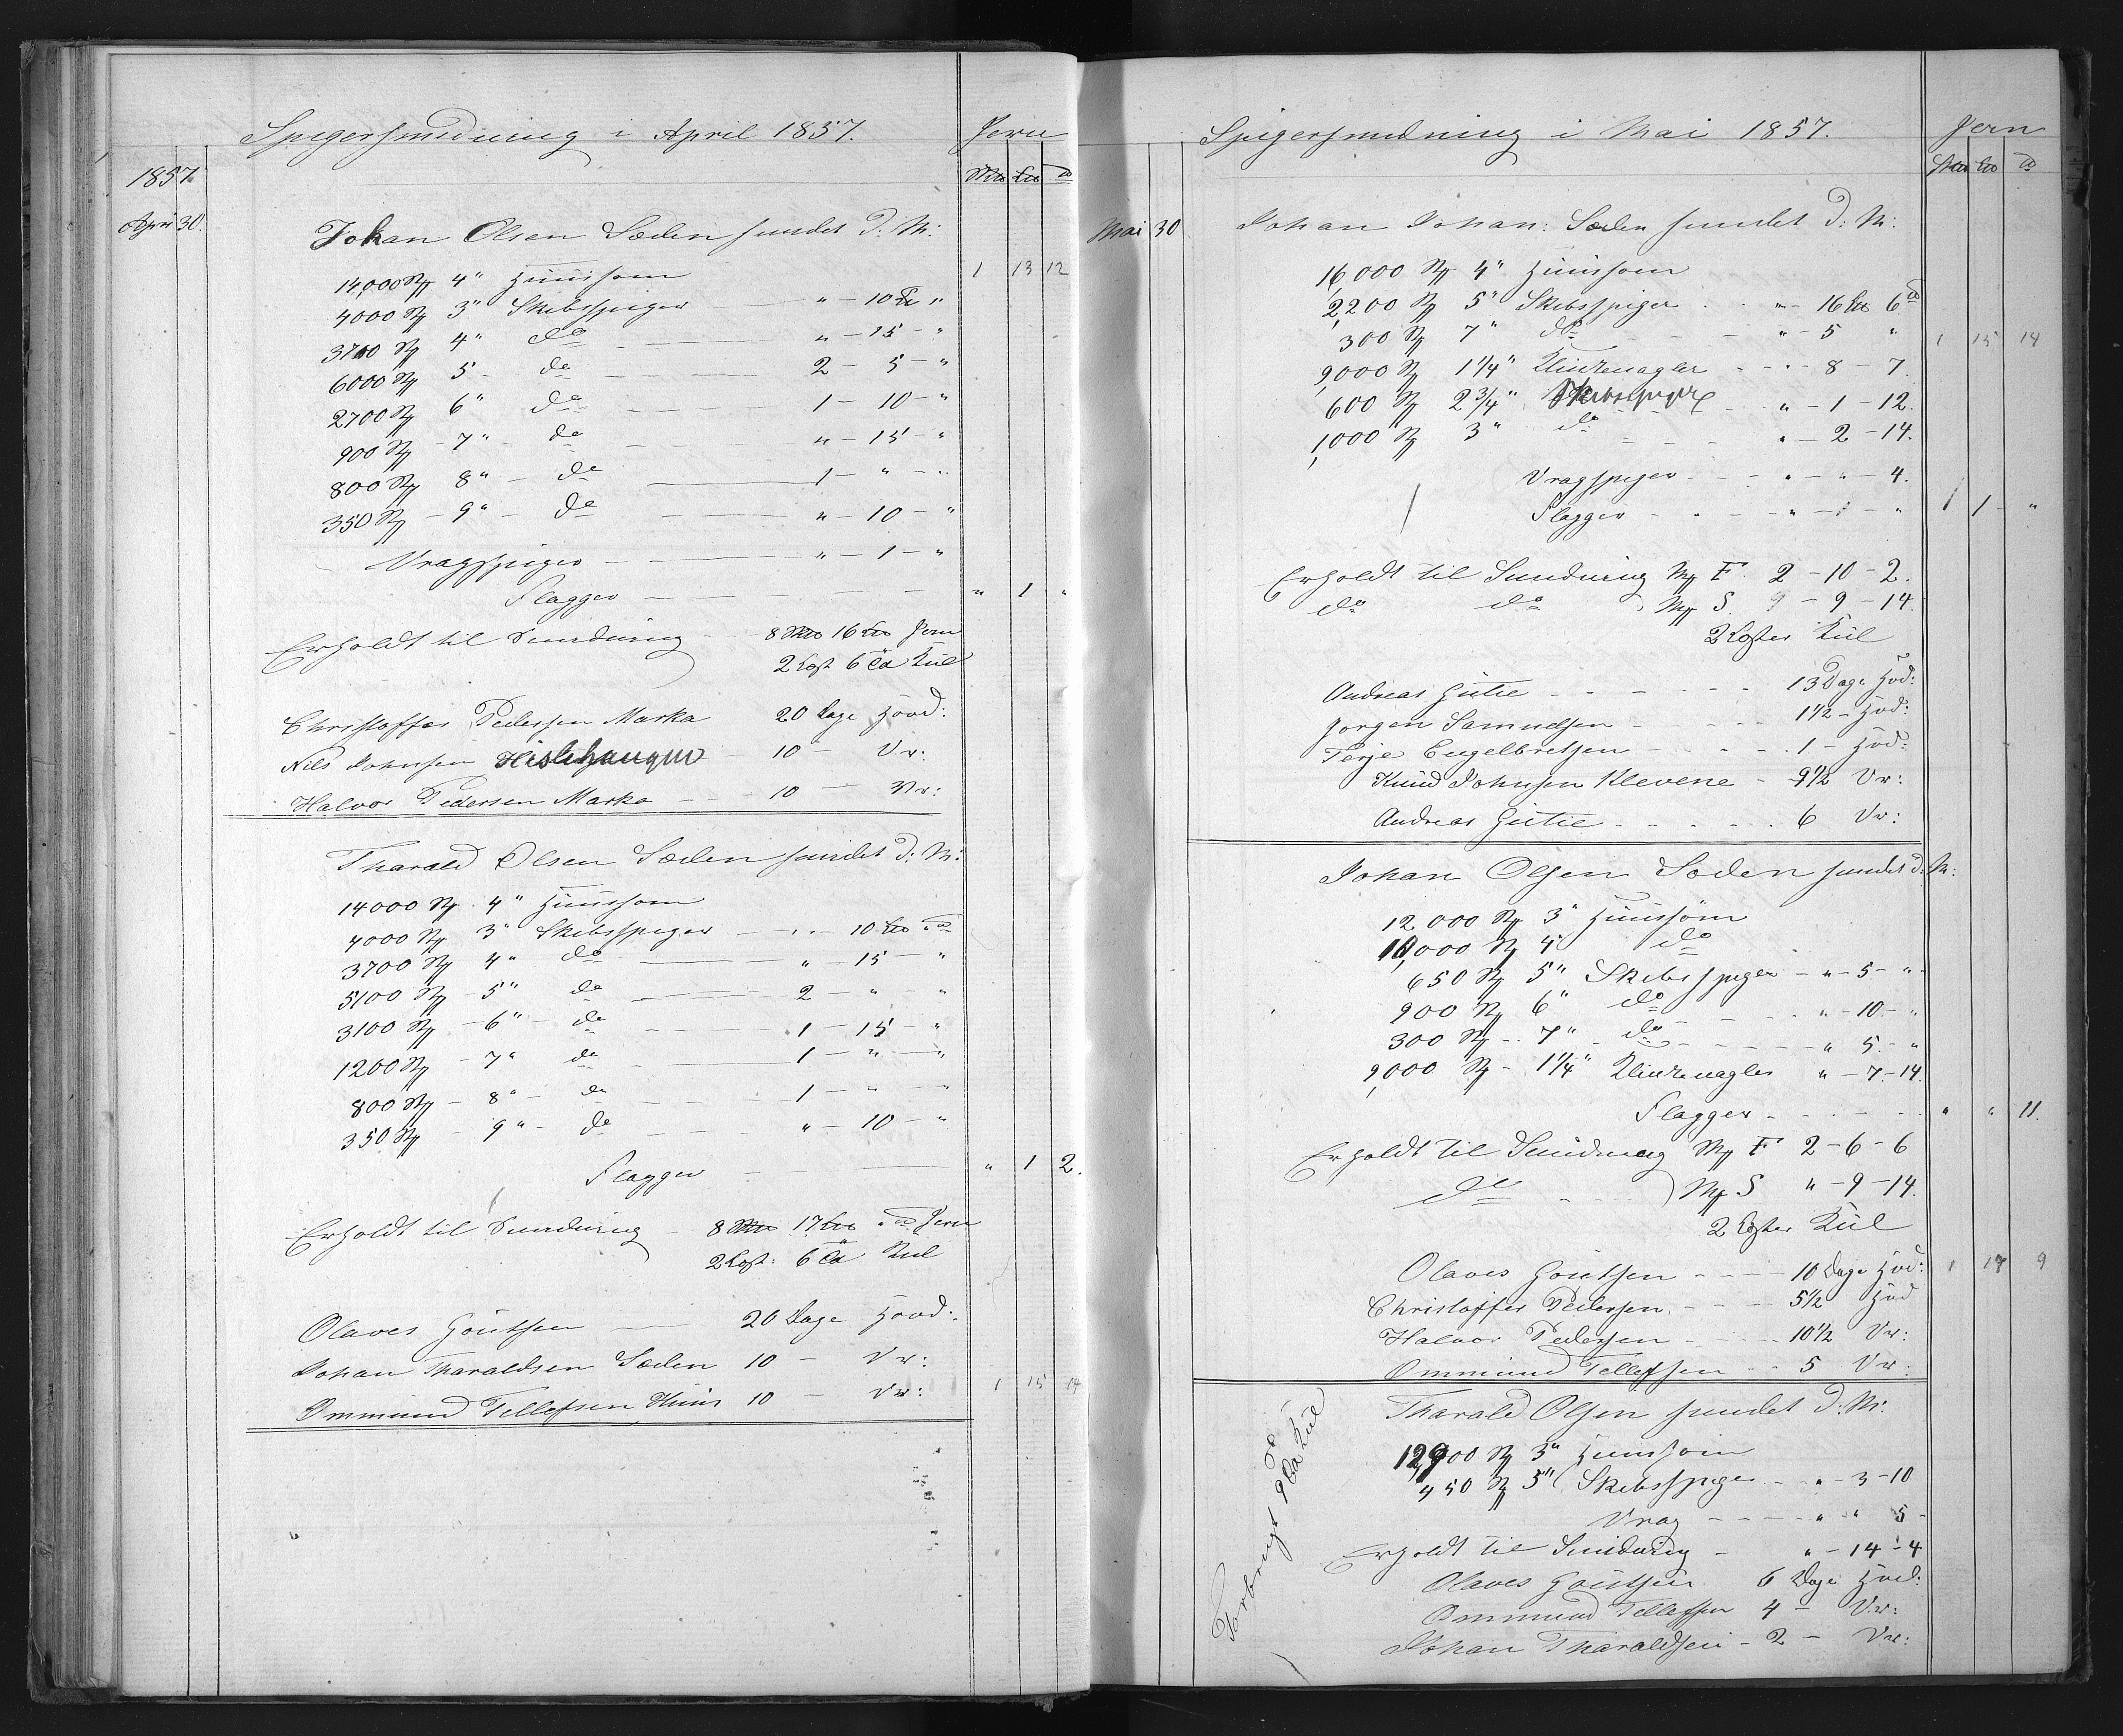 Spigersmidning i April 1857. Jern
1857
April 30. Johan Olsen Sœden smidet d: M:
14,000 St 4" Huussøm 1 13 12
4000 St 3" Skibsspiger " - 10 "
3700 St 4" do " - 15 - "
6000 St 5 - do 2 - 5 - "
2700 St 6" do 1 - 10 - "
900 St - 7" - do " - 15 - "
800 St 8" - do 1 - " - "
350 St - 9" - do " - 10 - "
Vragspiger " - 1 - "
Flagger " 1 "
Erholdt til Smidning 8 16 Jern
2 Lest 6 Kul
Christoffer Pedersen Marka 20 Dage Hovd:
Nils Johnsen 10 - Vr:
Halvor Pedersen Marka 10 - Vr:
Tharald Olsen Sœden smidet d: M:
14000 St. 4" Huussøm
4000 St 3" Skibsspiger " - 10
3700 St 4" do " - 15 - "
5100 St - 5" do 2 - " - "
3100 St - 6" - do 1 - 15 - "
1200 St - 7" do 1 - " - "
800 St - 8" - do 1 - " - "
350 St - 9" - do " - 10 - "
Flagger " 1 2.
Erholdt til Smidning 8 17 Jern
2 Lest: 6 Kul
Olaves Goutsen 20 Dage Hovd:
Johan Tharaldsen Sœden 10 - Vr:
Ommund Tellefsen Huus 10 - Vr: 1 15 14
Spigersmidning i Mai 1857. Jern
Mai 30 Johan Johan: Sœden smidet d: M:
16,000 St 4" Huussøm
2,200 St 5" Skibsspiger " - 16 6
300 St 7" do " - 5 " 1 15 14
9,000 St 1 1/4" Klinkenagler - 8 - 7.
600 St 2 3/4" Skibsspiger " - 1 - 12.
1,000 St 3" do " - 2 - 14.
Vragspiger " - " - 4.
Flagger " - 1 - " 1 1 "
Erholdt til Smidning Mk F. 2 - 10 - 2.
do do Mk S. 9 - 9 - 14.
2 Lester Kul
Andreas Gutie 13 Dage Hvd:
Jørgen Samuelsen 1 1/2 - Hvd:
Terje Engelbretsen 1 - Hvd:
Knud Johnsen Klevene - 9 1/2 Vr:
Andreas Gutie 6 Vr:
Johan Olsen Sœden smidet d: M:
12 000 St 3" Huussøm
10,000 St 4" do
650 St 5" Skibsspiger - " - 5 - "
900 St 6" do " - 10 - "
300 St - 7" do " 5 - "
9,000 St - 1 1/4" Klinkenagler " - 7 - 14.
Flagger " " 11.
Erholdt til Smidning Mk F 2 - 6 - 6
do Mk S " - 9 - 14.
2 Lester Kul
Olaves Goutsen 10 Dage Hvd: 1 17 9
Christoffer Pedersen 5 1/2 Hvd
Halvor Pedersen 10 1/2 Vr:
Ommund Tellefsen 5 Vr:
Tharald Olsen smidet d: M:
St 3" Huussøm
450 St 5" Skibsspiger " - 3 - 10
Vrag " " 5 -
Erholdt til Smidning - " - 14 - 4
Olaves Goutsen 6 Dage Hvd:
Ommund Tellefsen 4 - Vr:
Johan Tharaldsen - 2 - Vr:
Forbrugt 9 Kul